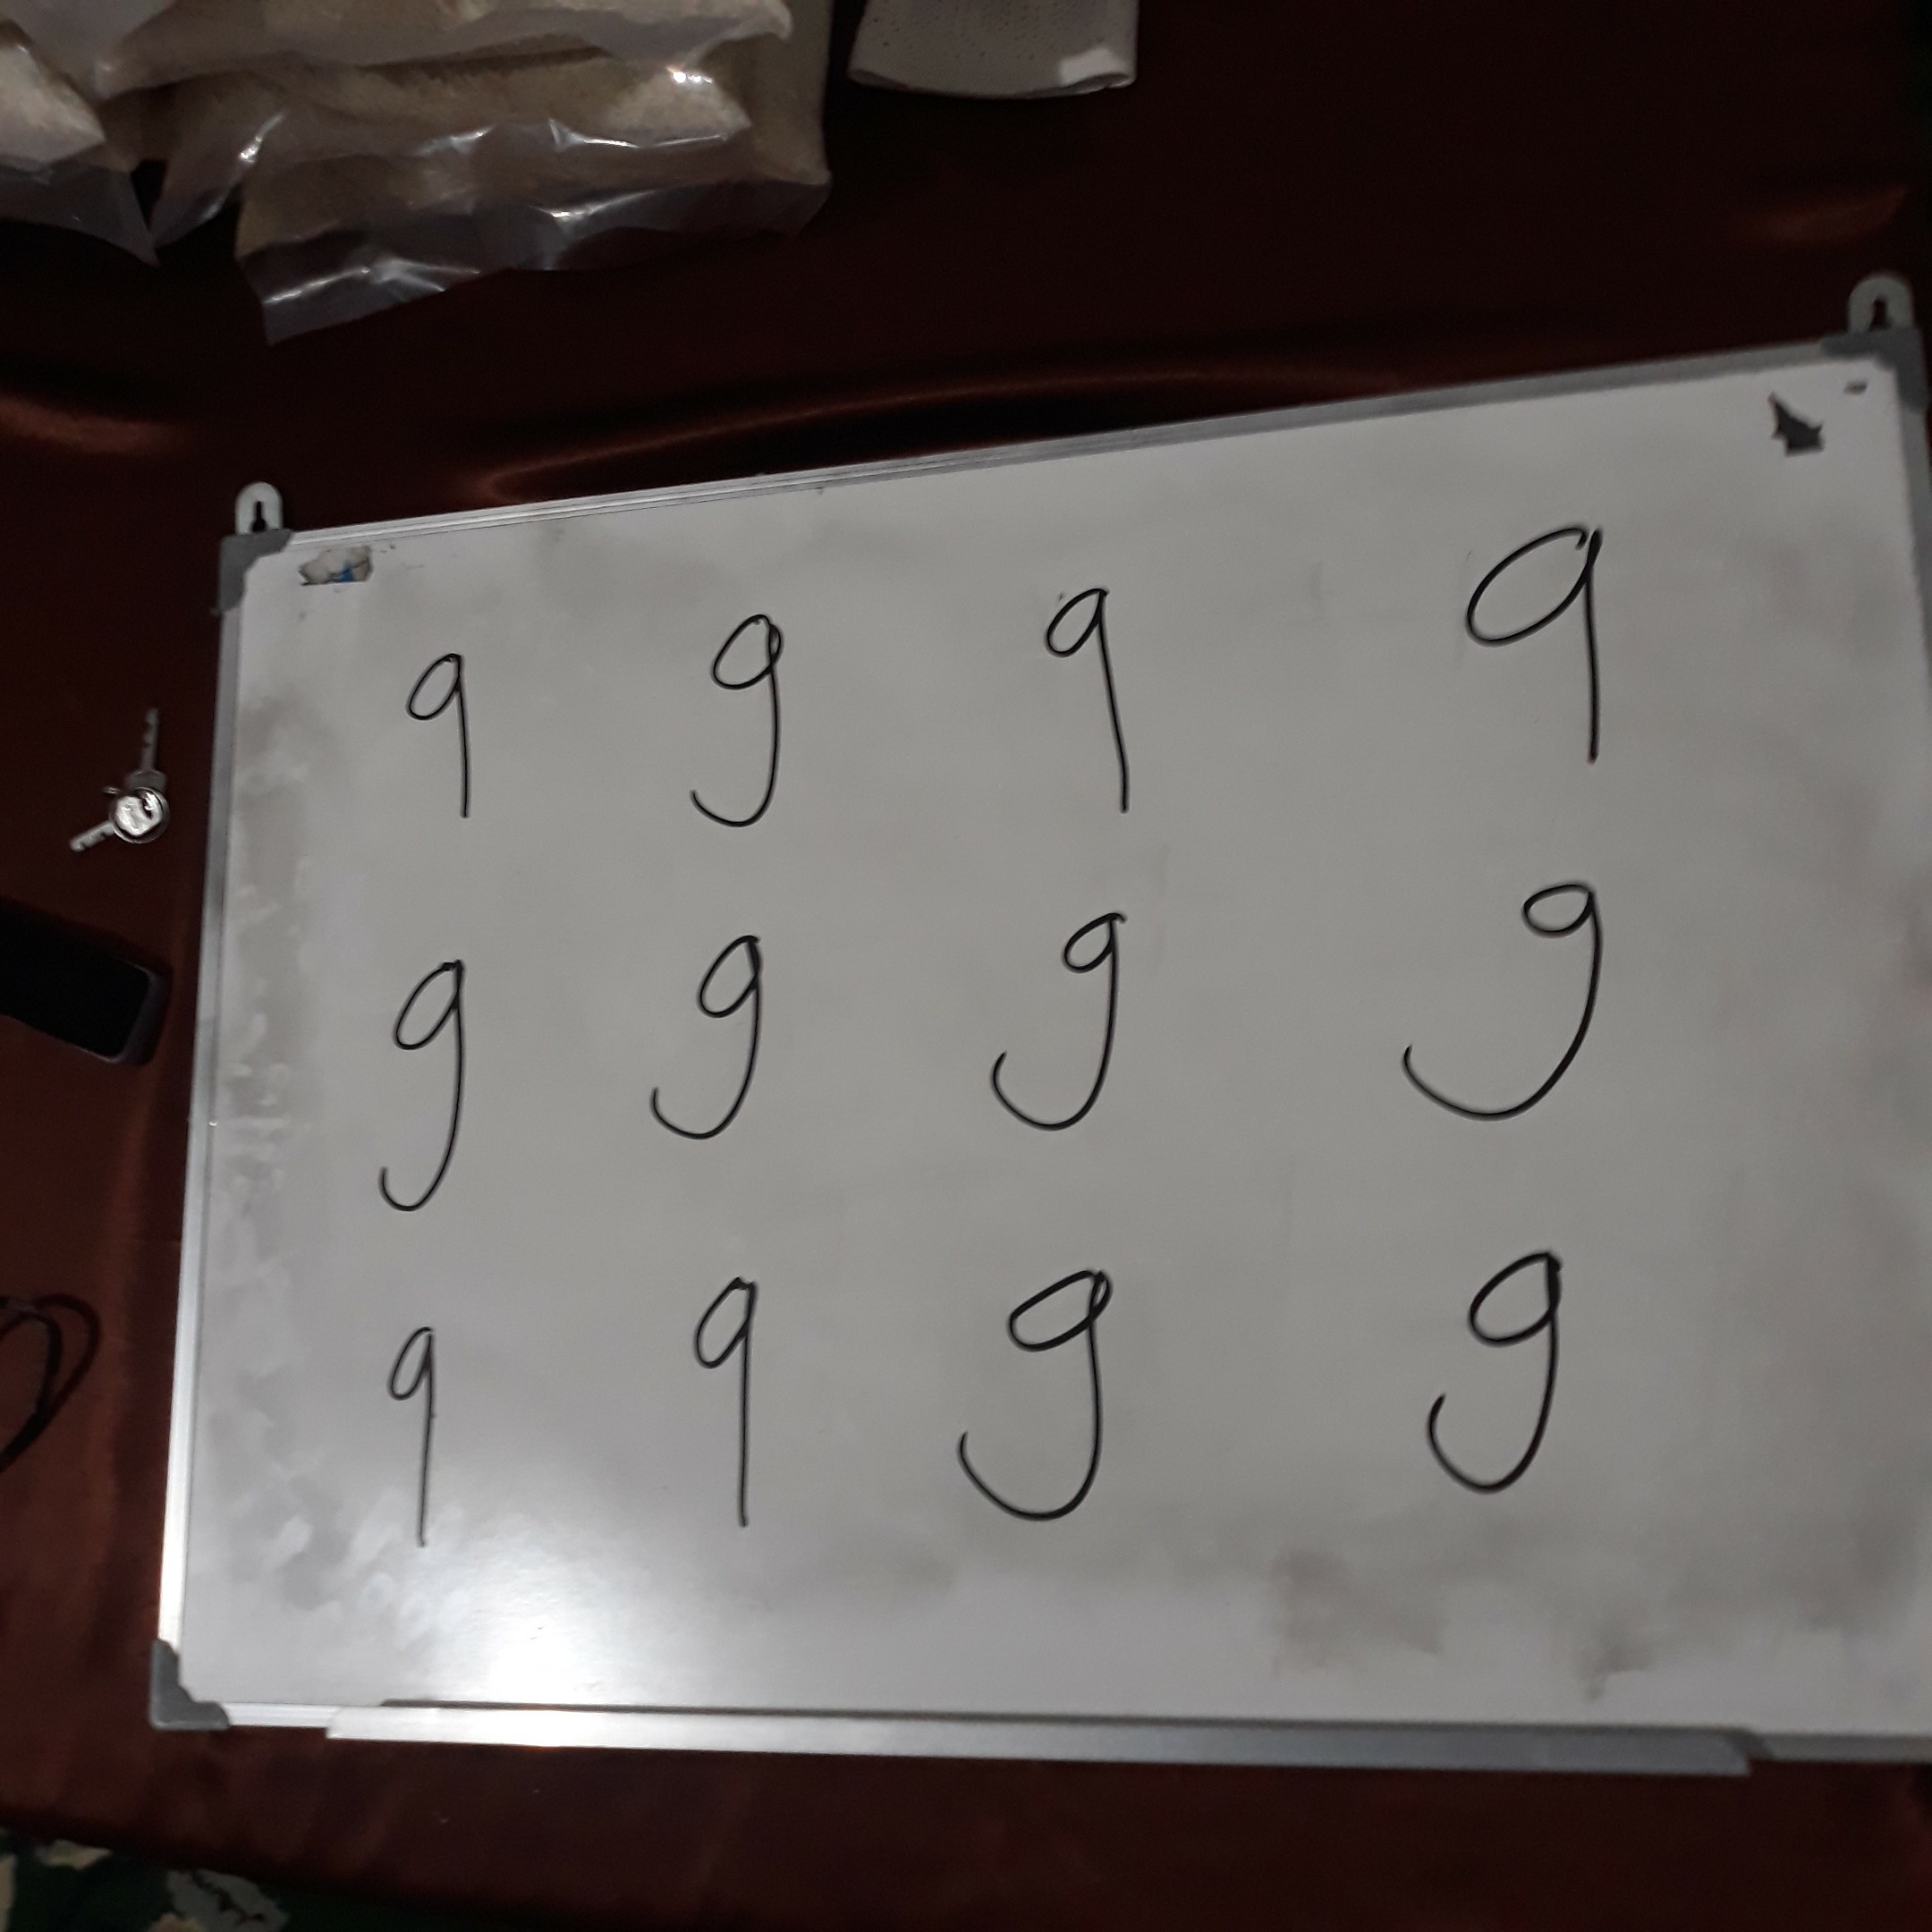 9 9 9 9
9 9 9 9
9 9 9 9